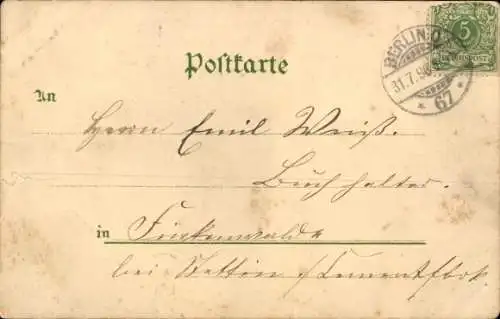 5
REICHSPOST
BERLIN
31.7.98
* 67 *
Postkarte
An
Herrn Emil Weiß.
Buchhalter.
in Finkenwalde
bei Stettin / Cementfbk.